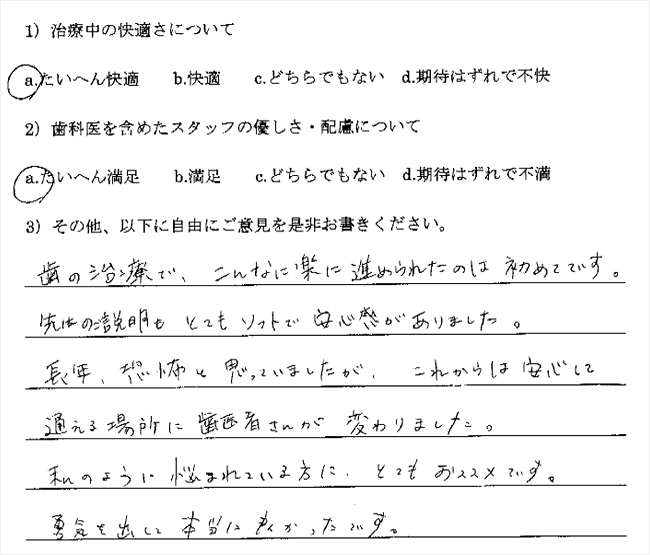 1）治療中の快適さについて
a.たいへん快適 b.快適 c.どちらでもない d.期待はずれで不快
2）歯科医を含めたスタッフの優しさ・配慮について
a.たいへん満足 b.満足 c.どちらでもない d.期待はずれで不満
3）その他、以下に自由にご意見を是非お書きください。
歯の治療で、こんなに楽に進められたのは初めてです。
先生の説明もとてもソフトで安心感がありました。
長年、恐怖と思っていましたが、これからは安心して
通える場所に歯医者さんが変わりました。
私のように悩まれている方に、とてもおススメです。
勇気を出して本当に良かったです。